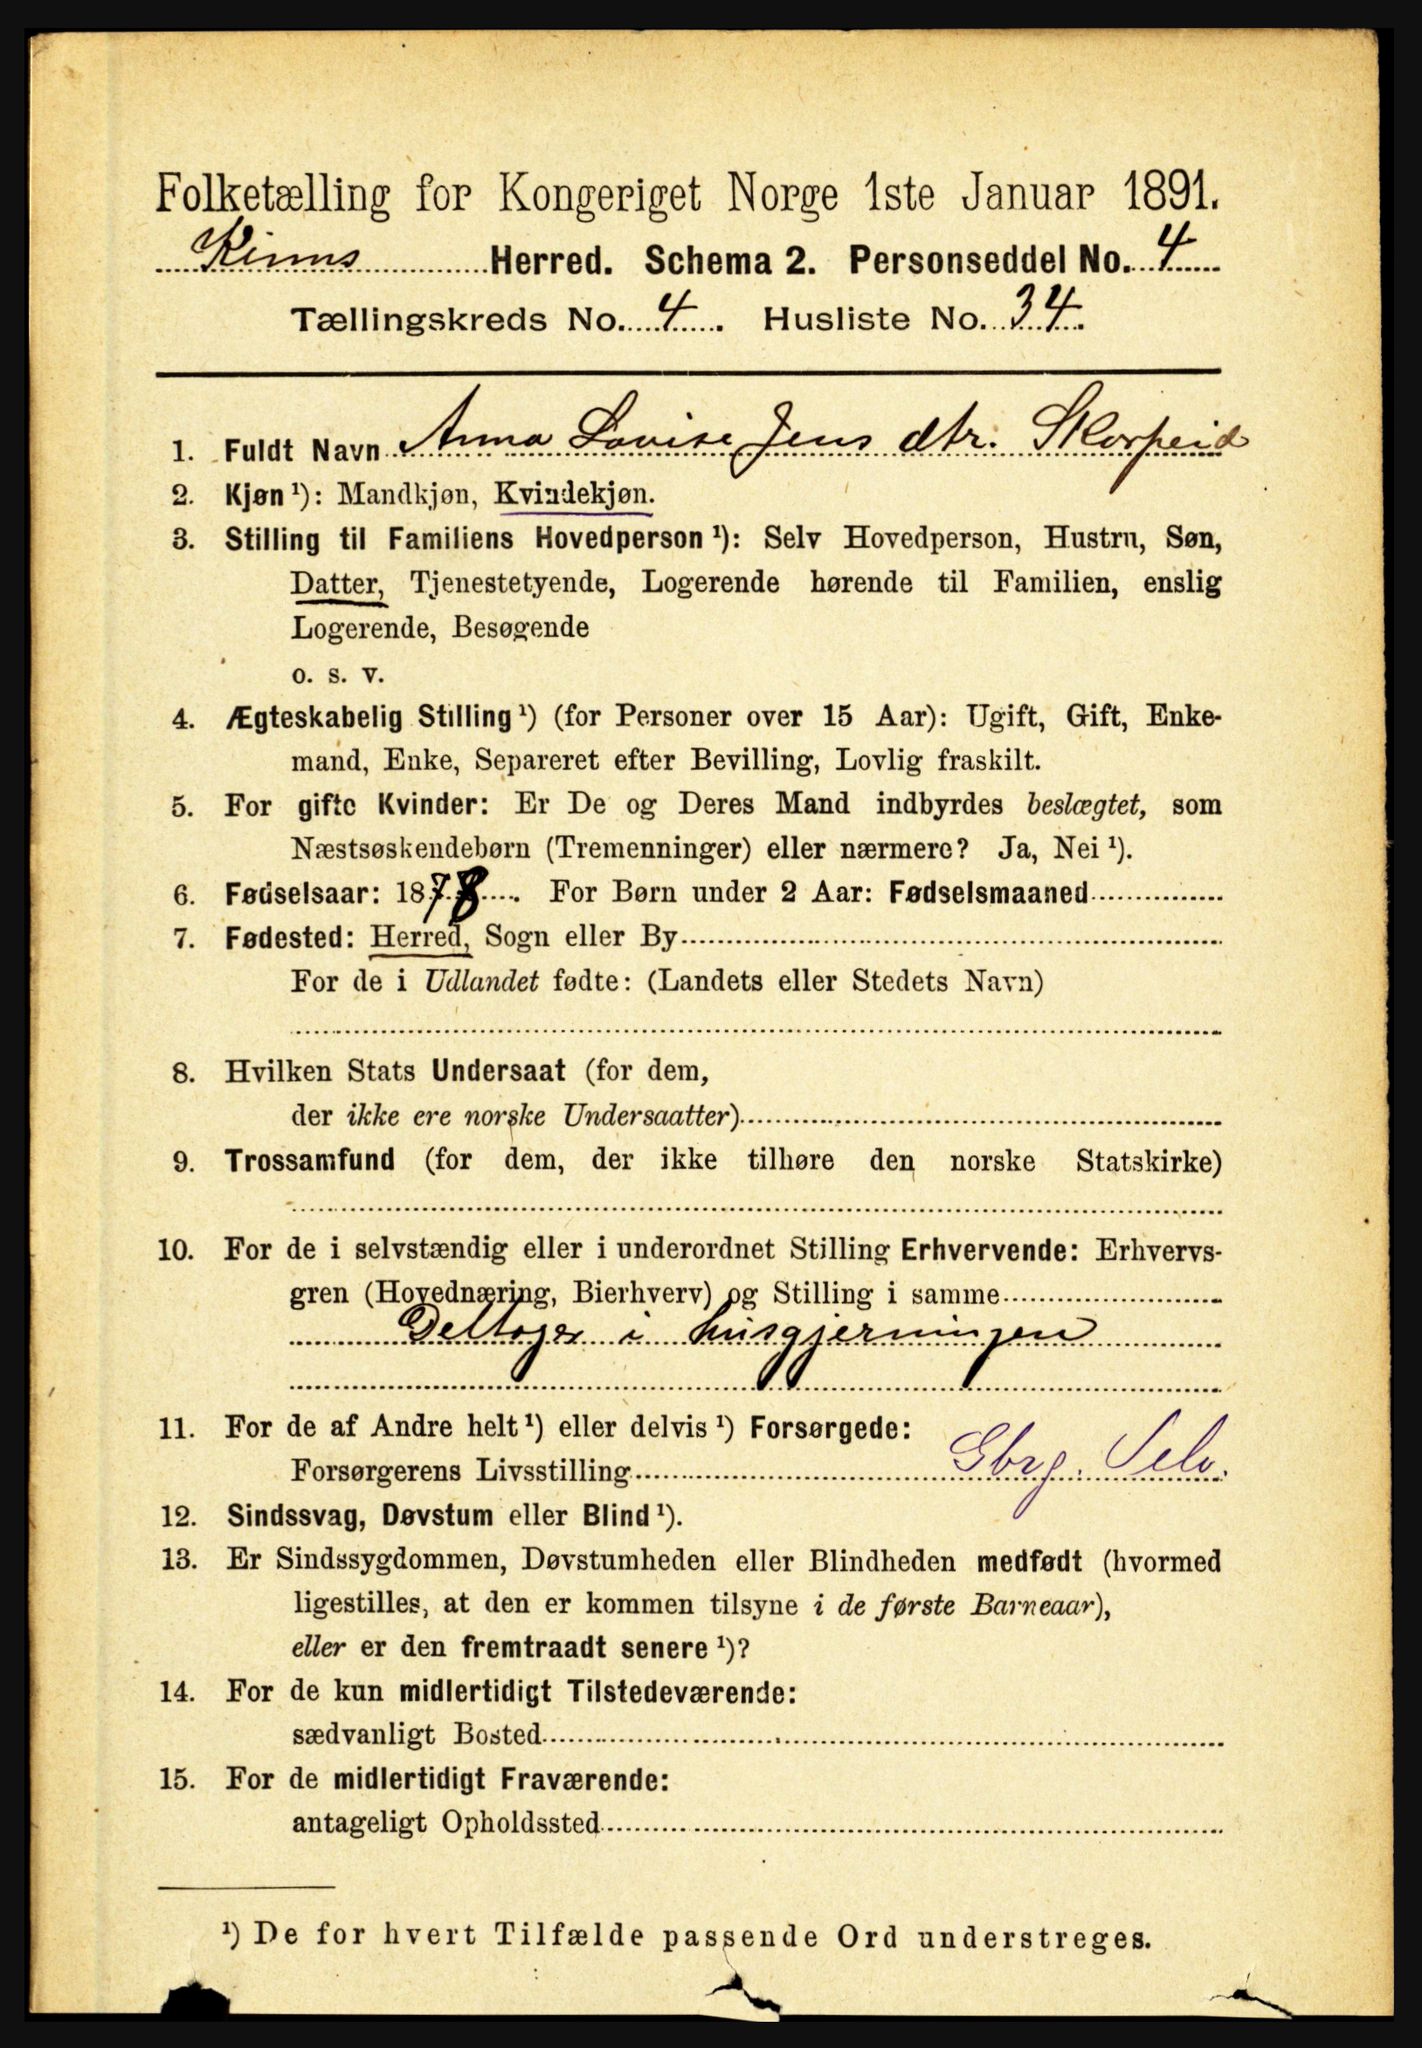 Folketælling for Kongeriget Norge 1ste Januar 1891.
Kinns Herred. Schema 2. Personseddel No. 4
Tællingskreds No. 4. Husliste No. 34.
1. Fuldt Navn Anna Lovise Jens dtr. Skorpeid
2. Kjøn ¹): Mandkjøn, Kvindekjøn.
3. Stilling til Familiens Hovedperson ¹): Selv Hovedperson, Hustru, Søn,
Datter, Tjenestetyende, Logerende hørende til Familien, enslig
Logerende, Besøgende
o. s. v.
4. Ægteskabelig Stilling ¹) (for Personer over 15 Aar): Ugift, Gift, Enke-
mand, Enke, Separeret efter Bevilling, Lovlig fraskilt.
5. For gifte Kvinder: Er De og Deres Mand indbyrdes beslægtet, som
Næstsøskendebørn (Tremenninger) eller nærmere? Ja, Nei ¹).
6. Fødselsaar: 1878. For Børn under 2 Aar: Fødselsmaaned
7. Fødested: Herred, Sogn eller By
For de i Udlandet fødte: (Landets eller Stedets Navn)
8. Hvilken Stats Undersaat (for dem,
der ikke ere norske Undersaatter)
9. Trossamfund (for dem, der ikke tilhøre den norske Statskirke)
10. For de i selvstændig eller i underordnet Stilling Erhvervende: Erhvervs-
gren (Hovednæring, Bierhverv) og Stilling i samme
Deltager i husgjerningen
11. For de af Andre helt ¹) eller delvis ¹) Forsørgede:
Forsørgerens Livsstilling Gbrg. Selv.
12. Sindssvag, Døvstum eller Blind ¹).
13. Er Sindssygdommen, Døvstumheden eller Blindheden medfødt (hvormed
ligestilles, at den er kommen tilsyne i de første Barneaar),
eller er den fremtraadt senere ¹)?
14. For de kun midlertidigt Tilstedeværende:
sædvanligt Bosted
15. For de midlertidigt Fraværende:
antageligt Opholdssted
¹) De for hvert Tilfælde passende Ord understreges.